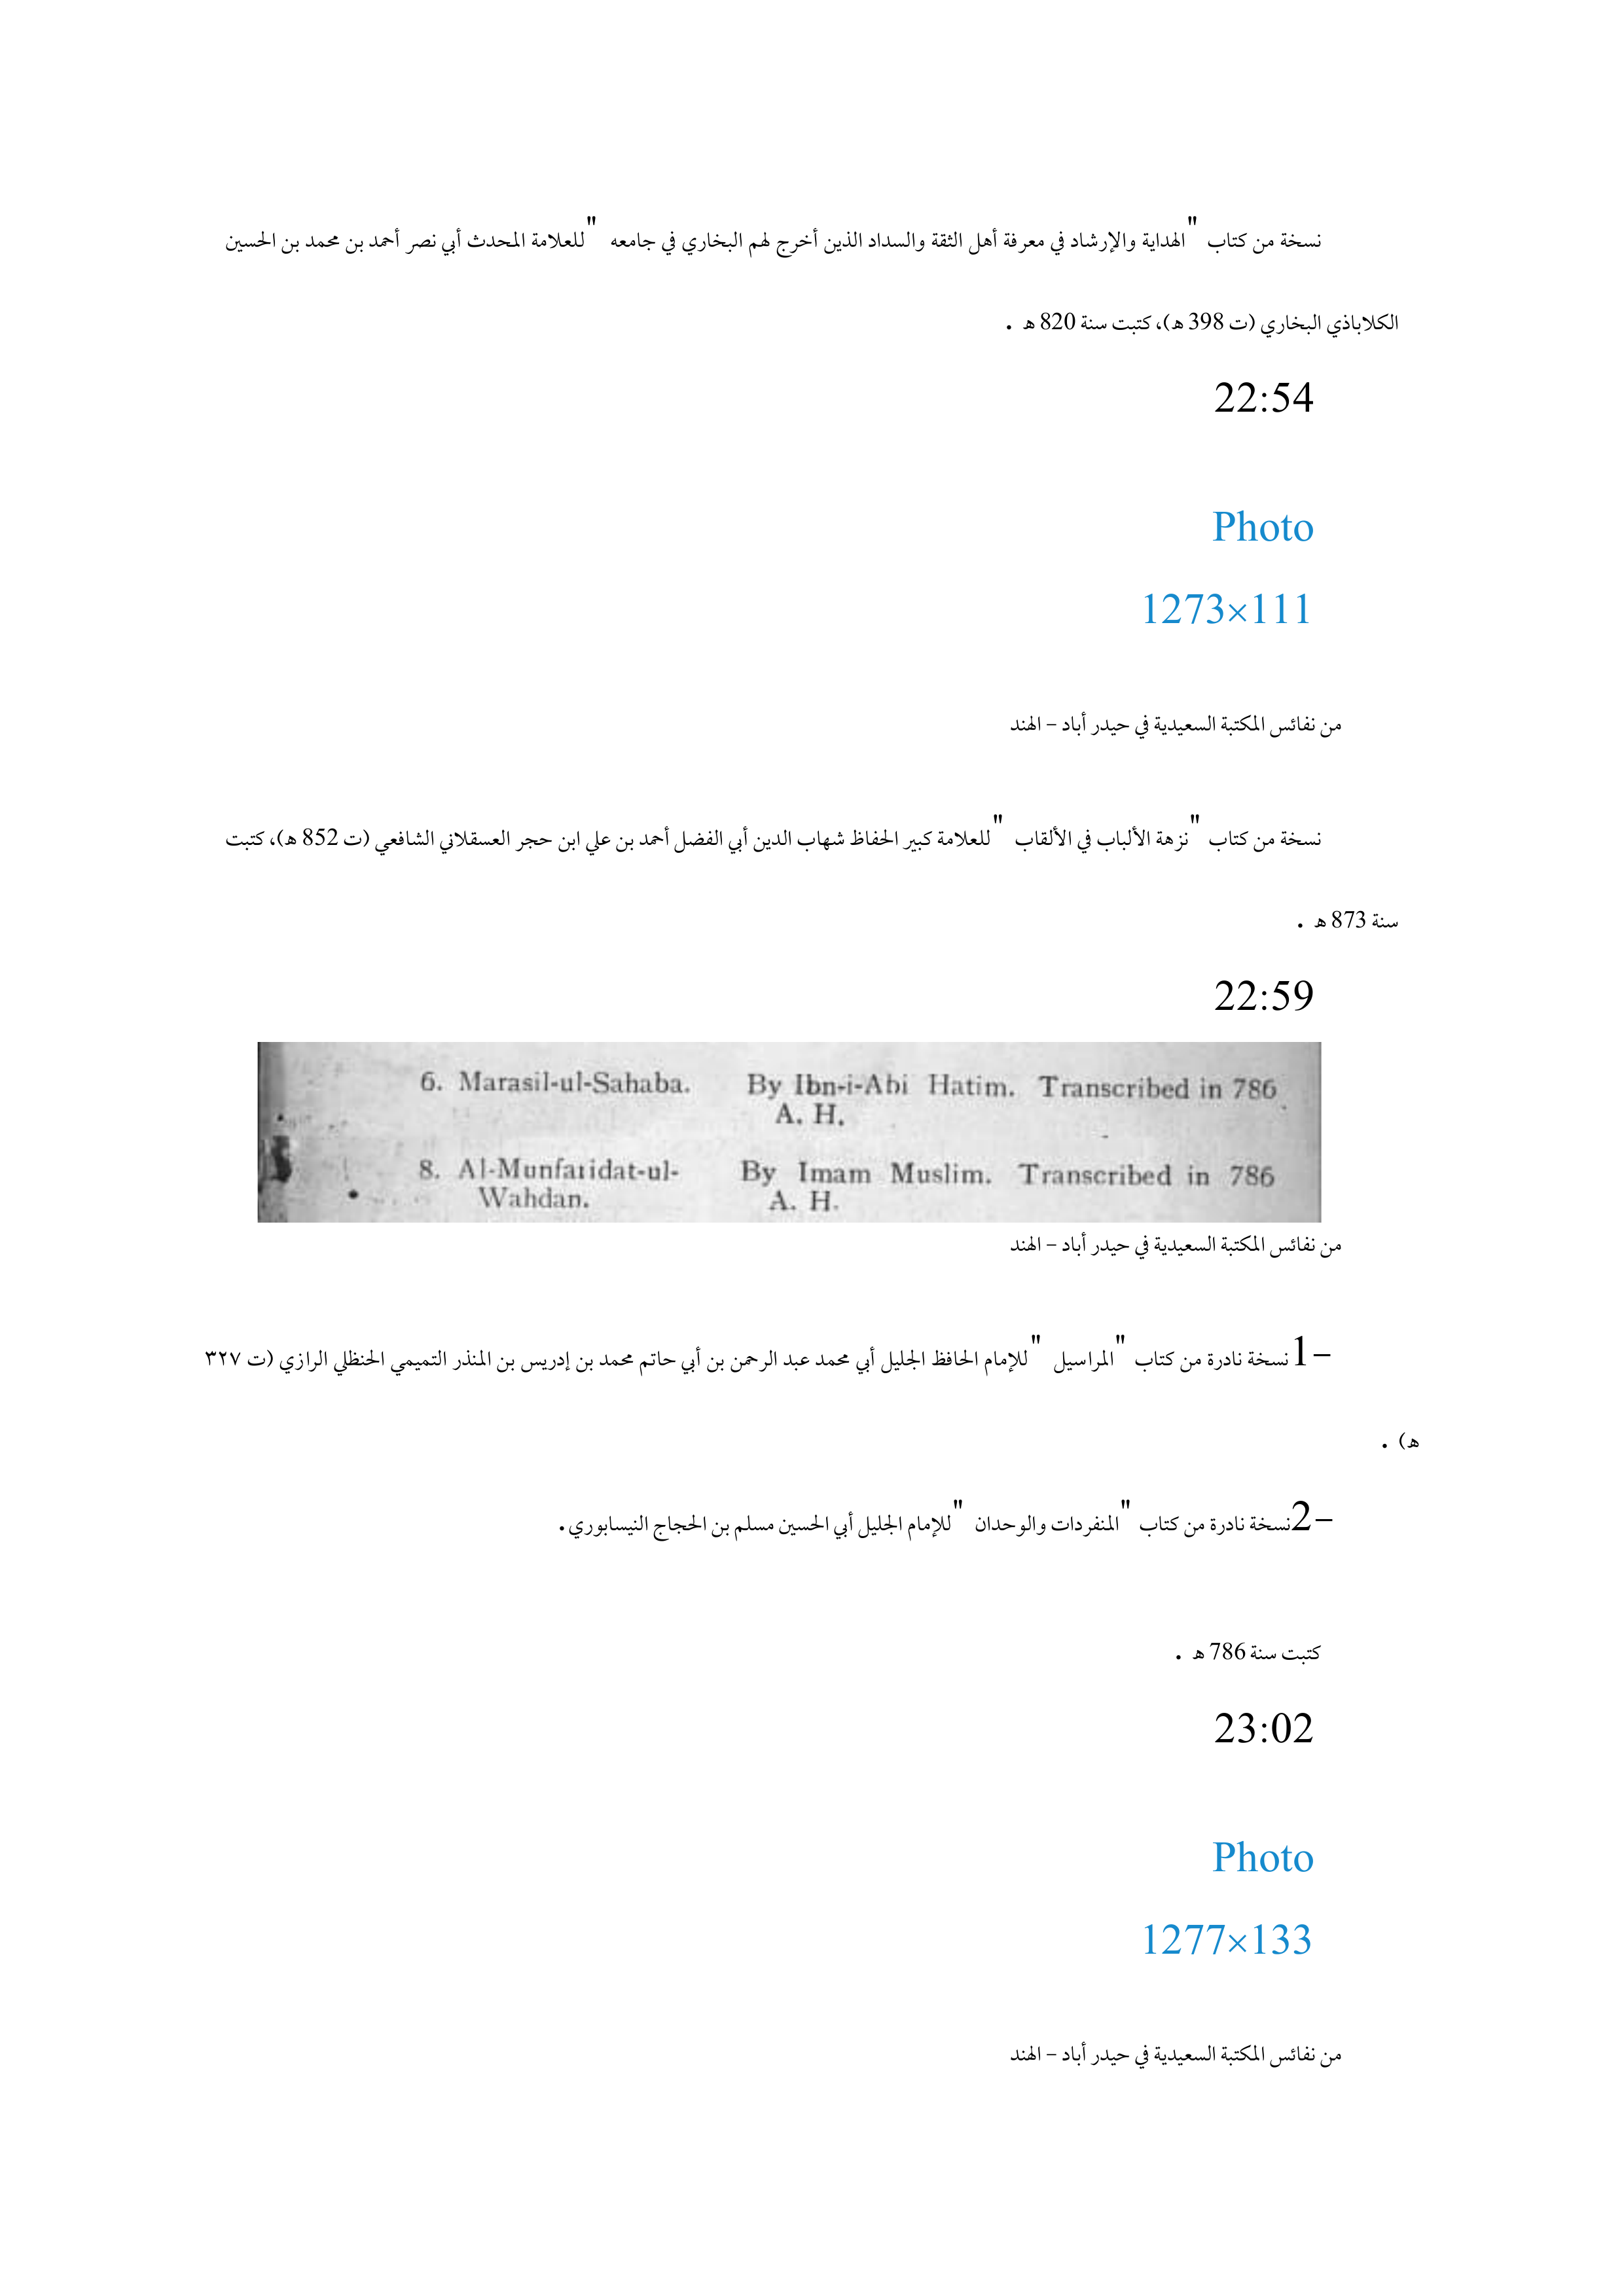 نسخة من كتاب "الهداية والإرشاد في معرفة أهل الثقة والسداد الذين أخرج لهم البخاري في جامعه" للعلامة المحدث أبي نصر أحمد بن محمد بن الحسين
الكلاباذي البخاري (ت 398 ه)، كتبت سنة 820 ه .
22:54
Photo
1273×111
من نفائس المكتبة السعيدية في حيدر أباد – الهند
نسخة من كتاب "نزهة الألباب في الألقاب" للعلامة كبير الحفاظ شهاب الدين أبي الفضل أحمد بن علي ابن حجر العسقلاني الشافعي (ت 852 ه)، كتبت
سنة 873 ه .
22:59
6. Marasil-ul-Sahaba. By Ibn-i-Abi Hatim. Transcribed in 786
A. H.
8. Al-Munfaridat-ul- By Imam Muslim. Transcribed in 786
Wahdan. A. H.
من نفائس المكتبة السعيدية في حيدر أباد – الهند
1– نسخة نادرة من كتاب "المراسيل" للإمام الحافظ الجليل أبي محمد عبد الرحمن بن أبي حاتم محمد بن إدريس بن المنذر التميمي الحنظلي الرازي (ت ٣٢٧
ه) .
2– نسخة نادرة من كتاب "المنفردات والوحدان" للإمام الجليل أبي الحسين مسلم بن الحجاج النيسابوري.
كتبت سنة 786 ه .
23:02
Photo
1277×133
من نفائس المكتبة السعيدية في حيدر أباد – الهند